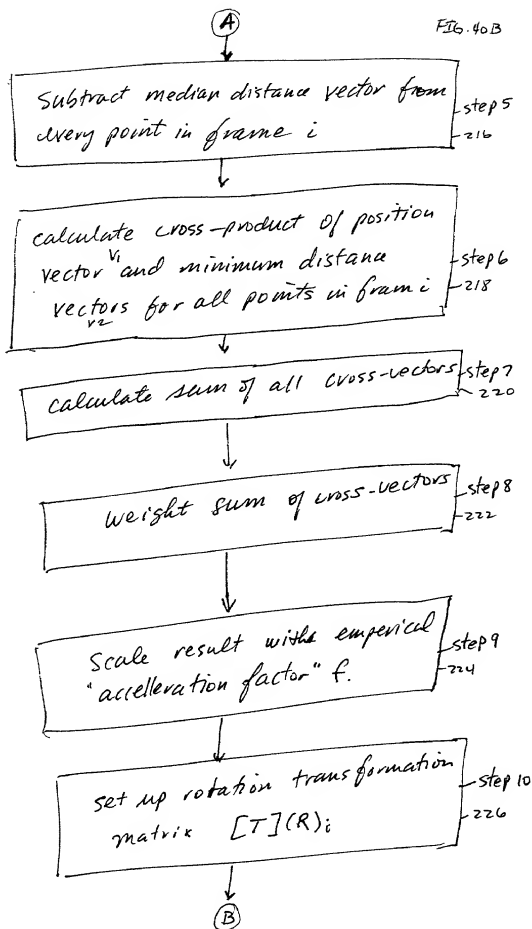 FIG. 40B
A
Subtract median distance vector from
every point in frame i
step 5
216
calculate cross-product of position
vector v1 and minimum distance
vectors v2 for all points in fram i
step 6
218
calculate sum of all cross-vectors
step 7
220
weight sum of cross-vectors
step 8
222
Scale result with emperical
"accelleration factor" f.
step 9
224
set up rotation transformation
matrix [T](R)i
step 10
226
B